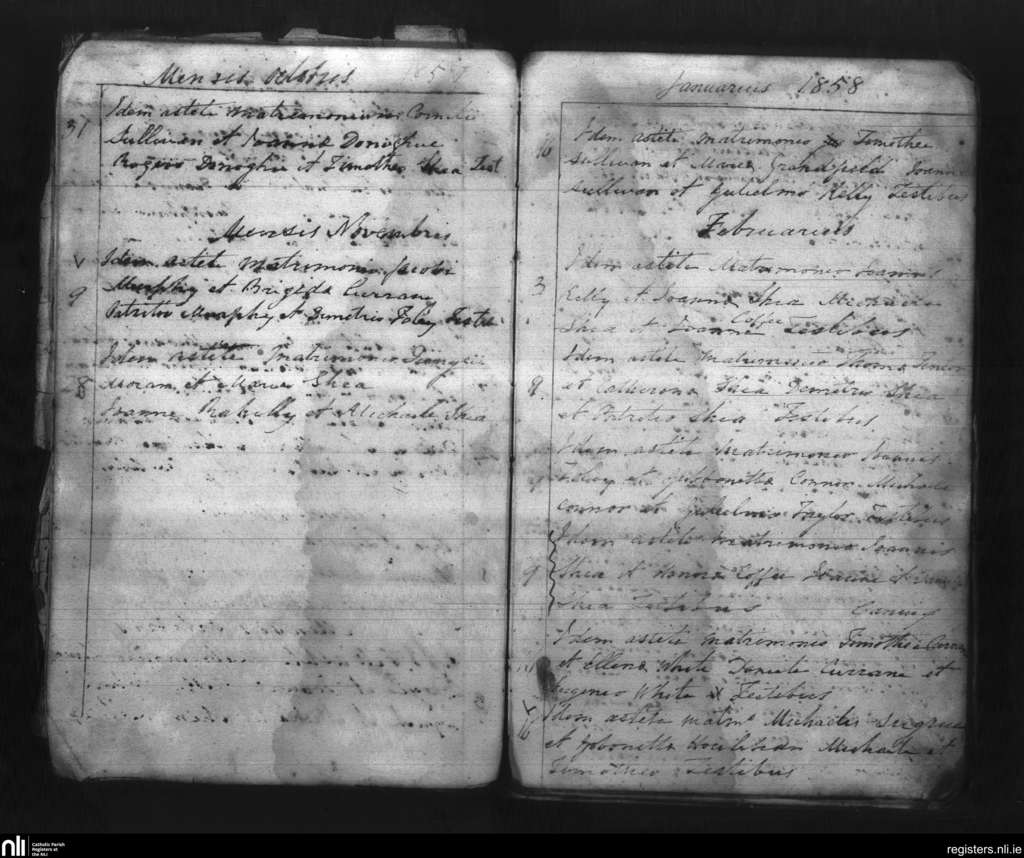 Mensis Octobris 1857
31 Idem astete Matrimonium Cornelii
Sullivan et Joanne Donoghue
Rogero Donoghue et Timotheo Shea Test
Mensis Novembris
Idem astete Matrimonio Jacobi
9 Murphy et Brigida Curran
Patritio Murphy et Demetrio Foley Teste
Idem astete Matrimonio
8 Moran et Marie Shea
Joanne et Michaele Shea
Januarius 1858
16 Idem astite Matrimoneo Timothei
Sullivan et Marie Grandfield Joanne
Sullivan et Gulielmo Kelly Testibus
Februarius
Idem astete Matrimoneo Joannis
3 Kelly et Joanna Shea Michaele
Shea et Joanne Coffee Testibus
Idem astete Matrimoneo Thoma
9 et Catherena Shea Demetrio Shea
et Patritio Shea Testibus
Idem astete Matrimoneo Joannis
9 Foley et Connor Michaele
Connor et Gulielmo Taylor Testibus
Idem astete Matrimoneo Joannis
9 Shea et Honora Coffee Joanne
Shea Testibus
Idem astete Matrimoneo Timothei Curran
et Ellena White Daniele Currane et
Eugenio White Testibus
Idem astete Matmo Michaelis Sugrue
16 et Houlihan Michaele et
Timotheo Testibus
nli
Catholic Parish
Registers at
the NLI
registers.nli.ie